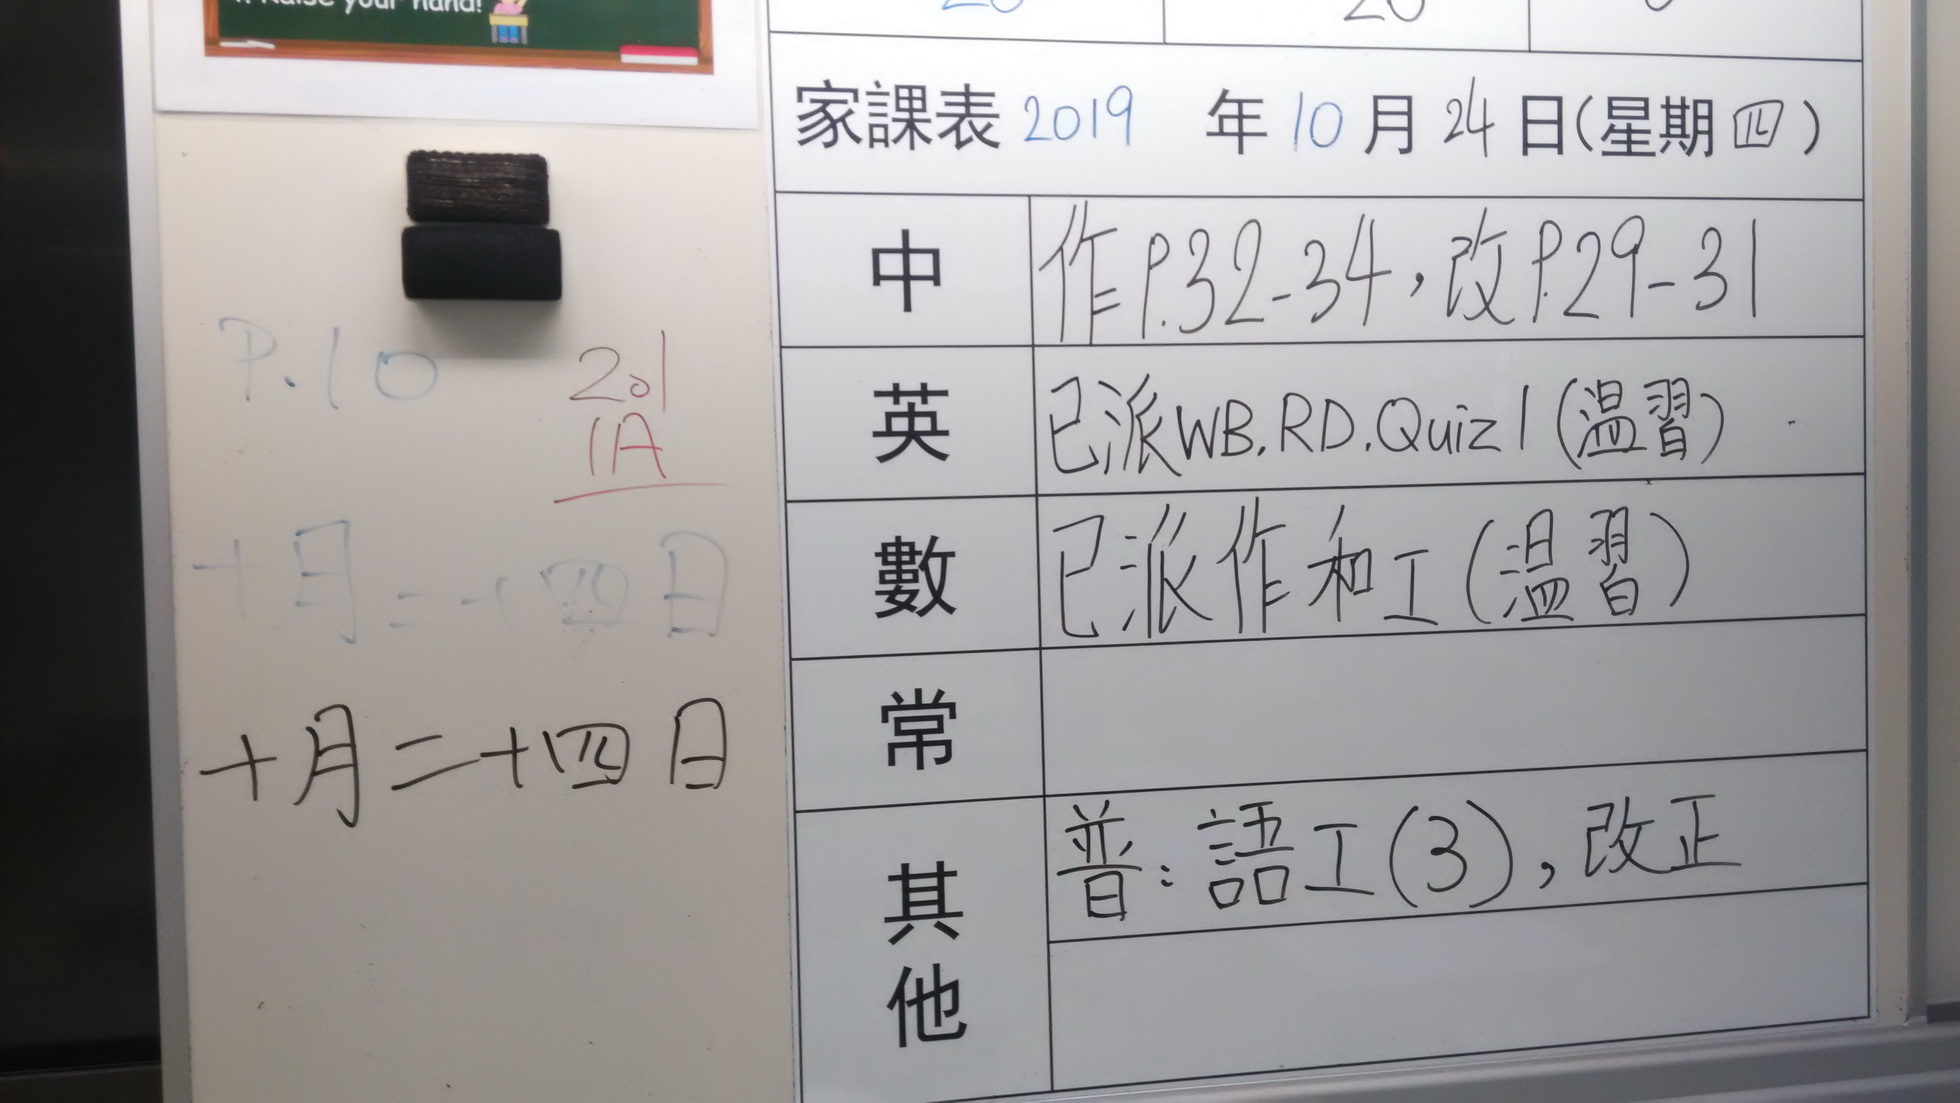 Raise your hand!
20 20 0
家課表 2019 年 10 月 24 日(星期四)
中 作P.32-34，改P.29-31
英 已派WB.RD.Quiz 1 (温習)
數 已派作和工(温習)
常
其他 普：語工(3)，改正
P.10
201
1A
十月二十四日
十月二十四日